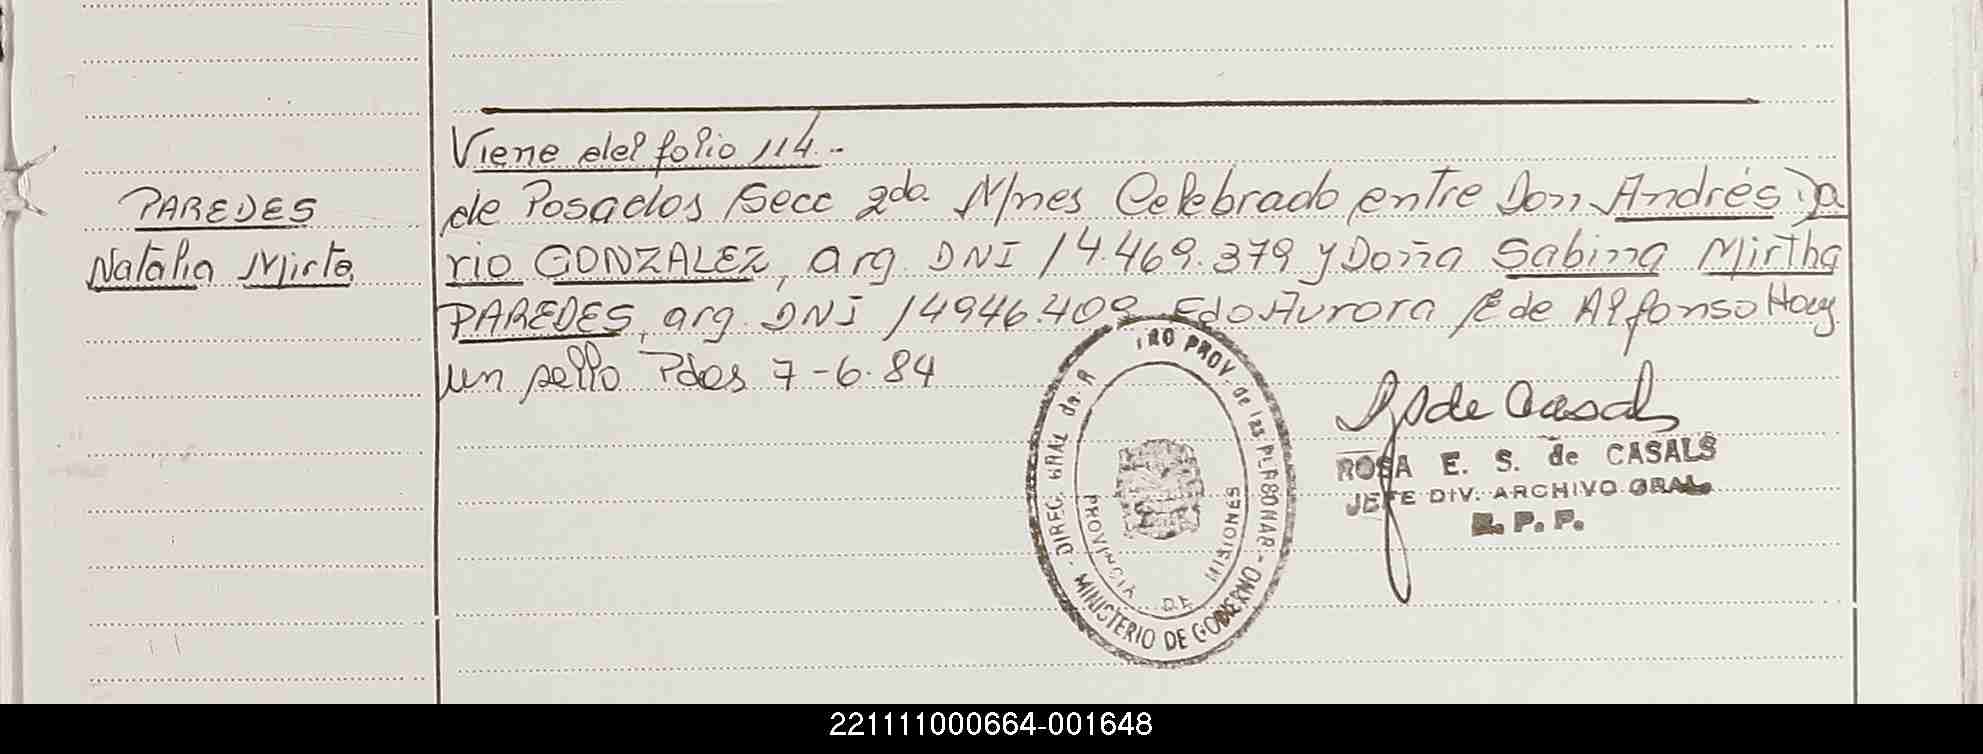 Viene del folio 114.-
PAREDES
Natalia Mirta
de Posadas Secc 2da. Mnes Celebrado entre Don Andrés Da
rio GONZALEZ, arg. DNI 14.469.379 y Doña Sabina Mirtha
PAREDES, arg. DNI 14946.409 Fdo Aurora E de Alfonso Hay
un sello Pdas 7-6-84
RO PROV. de las PERSONAS - MINISTERIO DE GOBIERNO - DIREC. GRAL de
PROVINCIA DE MISIONES
ROSA E. S. de CASALS
JEFE DIV. ARCHIVO GRAL.
R. P. P.
221111000664-001648